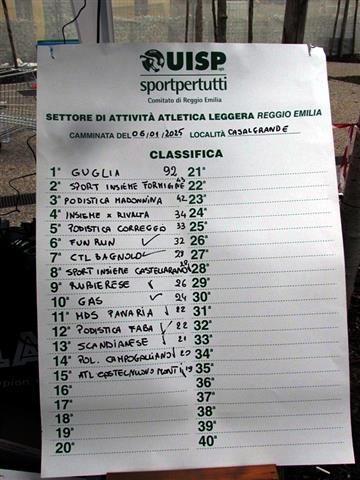 UISP
sportpertutti
Comitato di Reggio Emilia
SETTORE DI ATTIVITÀ ATLETICA LEGGERA REGGIO EMILIA
CAMMINATA DEL 06/01/2025 LOCALITÀ CASALGRANDE
CLASSIFICA
1° GUGLIA 92 21°
2° SPORT INSIEME FORMIGINE 43 22°
3° PODISTICA MADONNINA 42 23°
4° INSIEME X RIVALTA 34 24°
5° PODISTICA CORREGGIO 33 25°
6° FUN RUN 32 26°
7° CTL BAGNOLO 29 27°
8° SPORT INSIEME CASTELLARANO 28 28°
9° RUBIERESE 26 29°
10° GAS 24 30°
11° MDS PANARIA 22 31°
12° PODISTICA FABA 22 32°
13° SCANDIANESE 21 33°
14° POL. CAMPOGALLIANO 20 34°
15° ATL CASTELNUOVO MONTI 19 35°
16° 36°
17° 37°
18° 38°
19° 39°
20° 40°